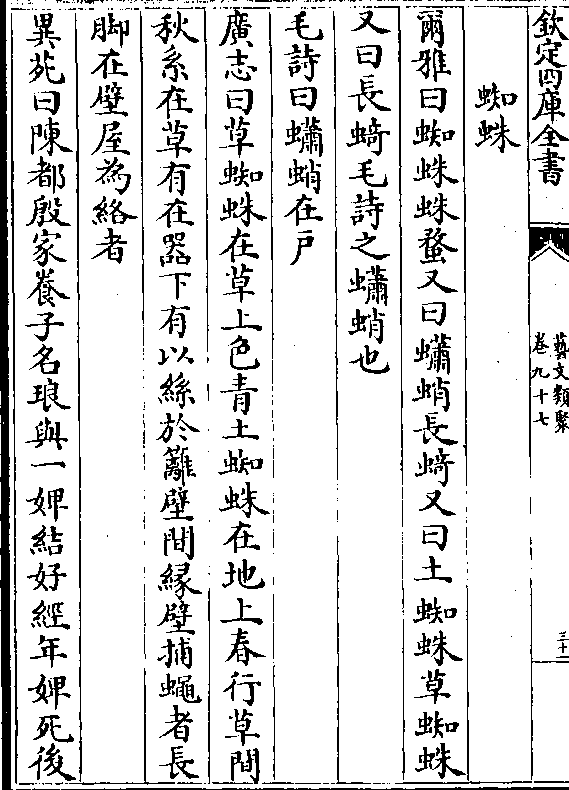 欽定四庫全書
藝文類聚
卷九十七
三十二
蜘蛛
爾雅曰蜘蛛蛛蝥又曰蠨蛸長蜻又曰土蜘蛛草蜘蛛
又曰長蜻毛詩之蠨蛸也
毛詩曰蠨蛸在戶
廣志曰草蜘蛛在草上色青土蜘蛛在地上春行草間
秋系在草有在器下有以絲於籬壁間緣壁捕蠅者長
脚在壁屋為絡者
異苑曰陳都殷家養子名琅與一婢結好經年婢死後